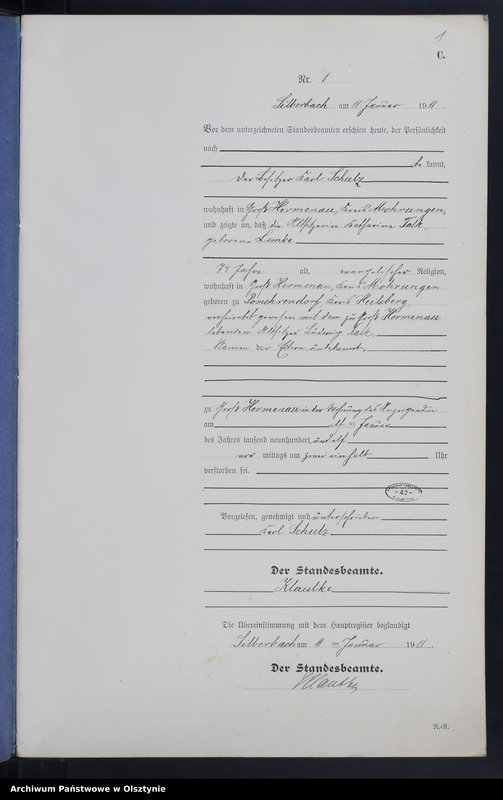 1
C.
Nr. 1
Silberbach am 11 Januar 1911.
Vor dem unterzeichneten Standesbeamten erschien heute, der Persönlichkeit
nach
be kannt,
der Besitzer Karl Schulz
wohnhaft in Groß Hermenau, Kreis Mohrungen,
und zeigte an, daß die Altsitzerin Katharina Falk,
geborene Lemke
74 Jahre alt, evangelischer Religion,
wohnhaft in Groß Hermenau, Kreis Mohrungen
geboren zu Pomehrendorf, Kreis Heilsberg
verheiratet gewesen mit dem zu Groß Hermenau
lebenden Altsitzer Ludwig Falk.
Namen der Eltern unbekannt,
zu Groß Hermenau in der Wohnung des Anzeigenden
am elf ten Januar
des Jahres tausend neunhundert und elf
vor mittags um zwei einhalb Uhr
verstorben sei.
42
Vorgelesen, genehmigt und unterschrieben
Karl Schulz
Der Standesbeamte.
Klautke
Die Übereinstimmung mit dem Hauptregister beglaubigt
Silberbach am 11 ten Januar 1911.
Der Standesbeamte.
Klautke
N.-R.
Archiwum Państwowe w Olsztynie